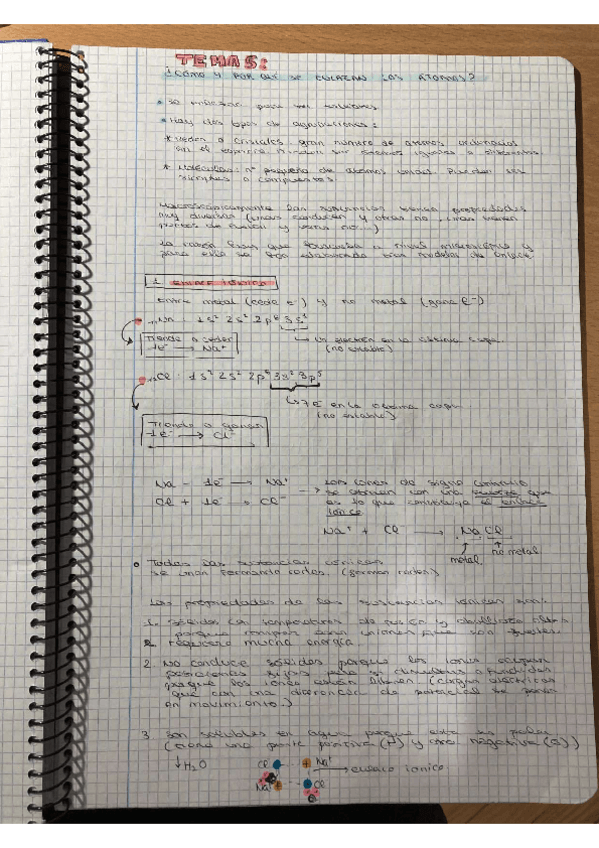 TEMA 5:
¿CÓMO Y POR QUÉ SE ENLAZAN LOS ÁTOMOS?
Se enlazan para ser estables
Hay dos tipos de agrupaciones:
* Redes o cristales: gran número de átomos ordenados
en el espacio. Pueden ser átomos iguales o diferentes.
* Moléculas: nº pequeño de átomos unidos. Pueden ser
simples o compuestos
Macroscópicamente las sustancias tienen propiedades
muy diversas (unas conducen y otras no, unas tienen
puntos de fusión y otras no...)
La razón hay que buscarla a nivel microscópico y
para ello se han elaborado tres modelos de enlace.
1. ENLACE IÓNICO
Entre metal (cede e⁻) y no metal (gana e⁻)
₁₁Na: 1s² 2s² 2p⁶ 3s¹
Tiende a ceder
1e⁻ → Na⁺
Un electrón en la última capa
(no estable)
₁₇Cl: 1s² 2s² 2p⁶ 3s² 3p⁵
7e⁻ en la última capa
(no estable)
Tiende a ganar
1e⁻ → Cl⁻
Na - 1e⁻ → Na⁺
Cl + 1e⁻ → Cl⁻
Los iones de signo contrario
se atraen con una fuerza que
es lo que constituye el enlace
iónico
Na⁺ + Cl⁻ → NaCl
metal no metal
Todas las sustancias iónicas
se unen formando redes. (forman redes)
Las propiedades de las sustancias iónicas son:
1. Sólidos con temperaturas de fusión y ebullición altas
porque rompen unas uniones que son fuertes.
requiere mucha energía.
2. No conduce sólidos porque los iones ocupan
posiciones fijas pero si disueltos o fundidos
porque los iones están libres (cargas eléctricas
que con una diferencia de potencial se ponen
en movimiento.)
3. Son solubles en agua porque esta es polar
(tiene una parte positiva (H) y otra negativa (O))
↓H₂O
Cl⁻ Na⁺
→ enlace iónico
Na⁺ Cl